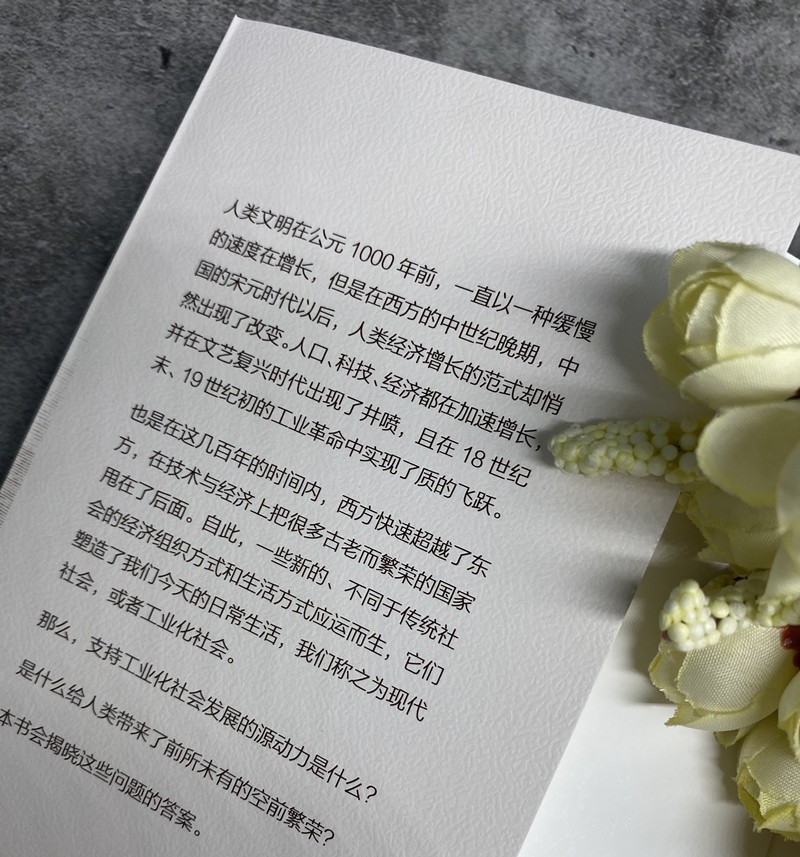 人类文明在公元 1000 年前，一直以一种缓慢
的速度在增长，但是在西方的中世纪晚期，中
国的宋元时代以后，人类经济增长的范式却悄
然出现了改变。人口、科技、经济都在加速增长，
并在文艺复兴时代出现了井喷，且在 18 世纪
末、19 世纪初的工业革命中实现了质的飞跃。
也是在这几百年的时间内，西方快速超越了东
方，在技术与经济上把很多古老而繁荣的国家
甩在了后面。自此，一些新的、不同于传统社
会的经济组织方式和生活方式应运而生，它们
塑造了我们今天的日常生活，我们称之为现代
社会，或者工业化社会。
那么，支持工业化社会发展的源动力是什么？
是什么给人类带来了前所未有的空前繁荣？
本书会揭晓这些问题的答案。